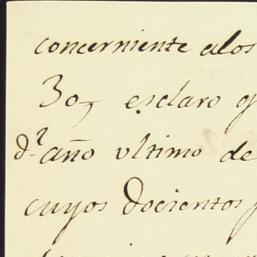 concerniente alos
30, esclaro q
dr año ultimo de
cuyos Docientos